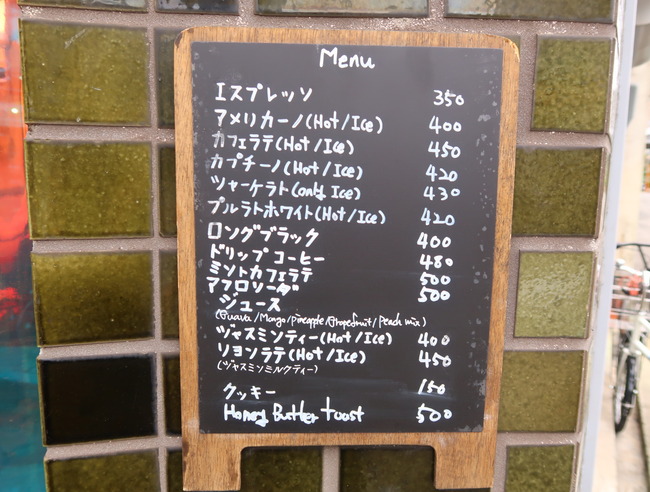 Menu
エスプレッソ 350
アメリカーノ(Hot/Ice) 400
カフェラテ(Hot/Ice) 450
カプチーノ(Hot/Ice) 420
ツャーケラト(only Ice) 430
プルラトホワイト(Hot/Ice) 420
ロングブラック 400
ドリップコーヒー 480
ミントカフェラテ 500
アフロソーダ 500
ジュース
(Guava/Mango/pineapple/Grapefruit/Peach mix)
ヅャスミンティー(Hot/Ice) 400
リヨンラテ(Hot/Ice) 450
(ヅャスミンミルクティー)
クッキー 150
Honey Butter toast 500